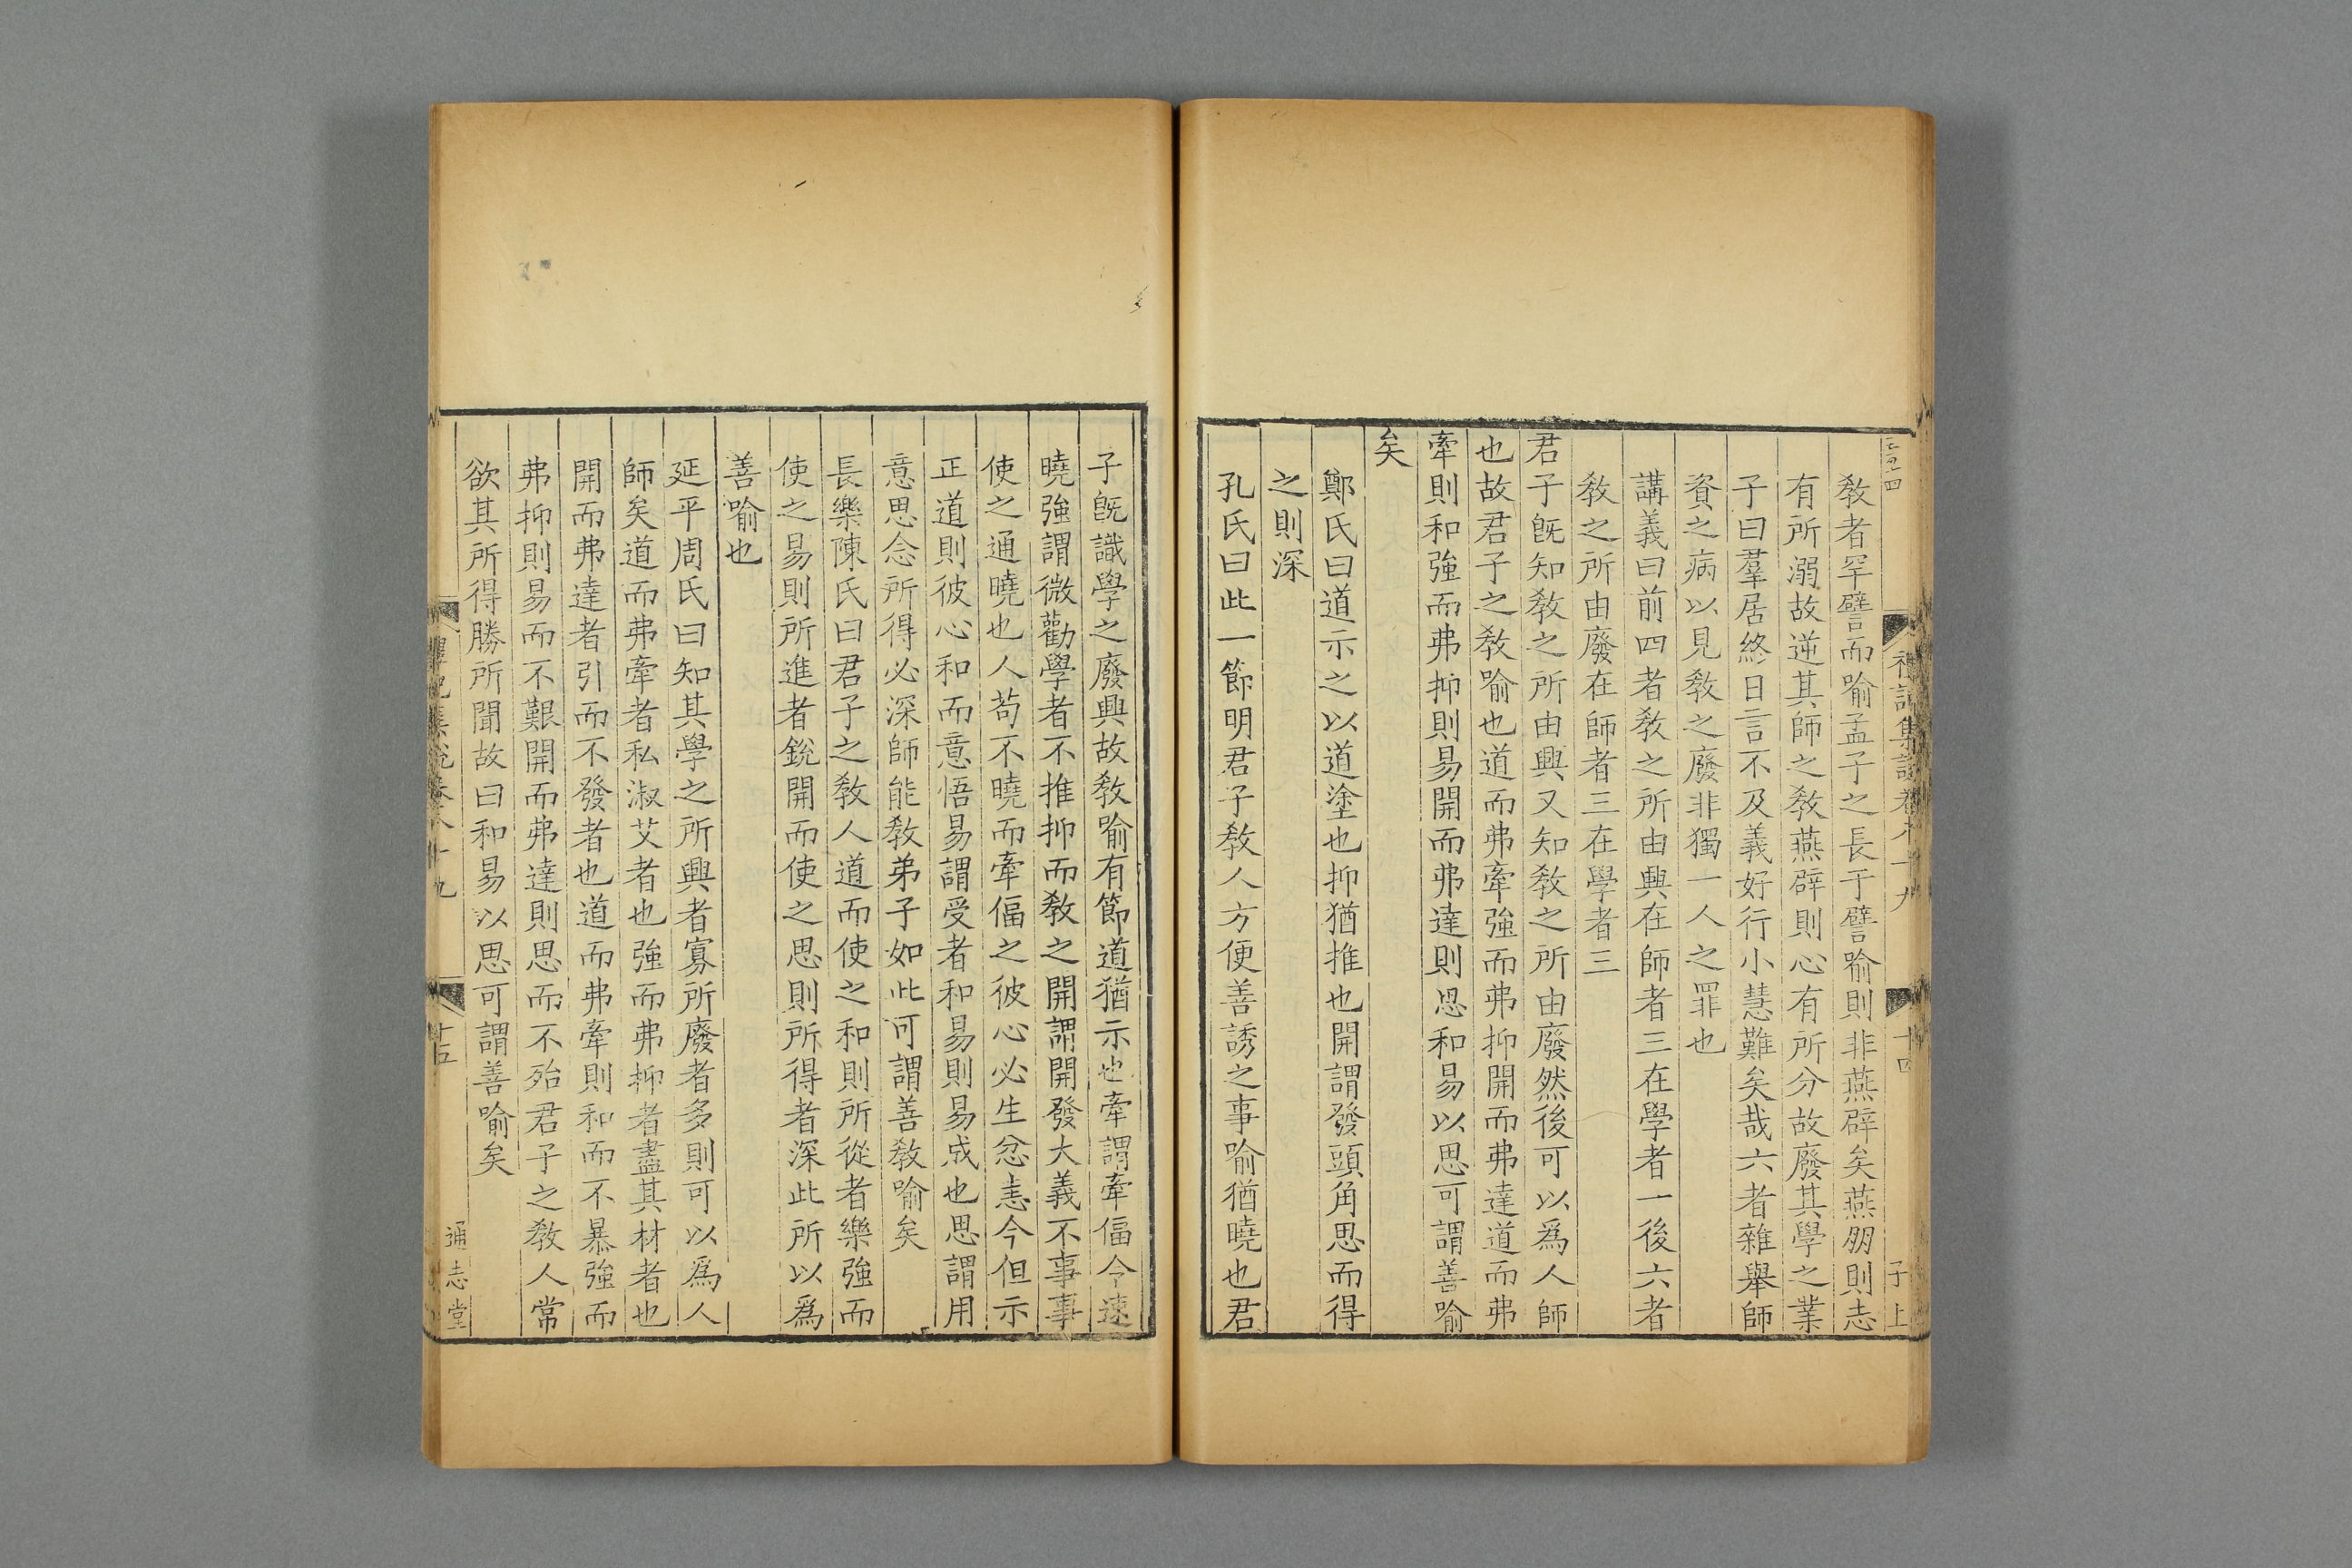 禮記集說卷八十九
十四
子上
教者罕譬而喻孟子之長于譬喻則非燕辟矣燕朋則志
有所溺故逆其師之教燕辟則心有所分故廢其學之業
子曰羣居終日言不及義好行小慧難矣哉六者雜舉師
資之病以見教之廢非獨一人之罪也
講義曰前四者教之所由興在師者三在學者一後六者
教之所由廢在師者三在學者三
君子旣知教之所由興又知教之所由廢然後可以爲人師
也故君子之教喻也道而弗牽強而弗抑開而弗達道而弗
牽則和強而弗抑則易開而弗達則思和易以思可謂善喻
矣
鄭氏曰道示之以道塗也抑猶推也開謂發頭角思而得
之則深
孔氏曰此一節明君子教人方便善誘之事喻猶曉也君
子旣識學之廢興故教喻有節道猶示也牽謂牽偪令速
曉強謂微勸學者不推抑而教之開謂開發大義不事事
使之通曉也人苟不曉而牽偪之彼心必生忿恚今但示
正道則彼心和而意悟易謂受者和易則易成也思謂用
意思念所得必深師能教弟子如此可謂善教喻矣
長樂陳氏曰君子之教人道而使之和則所從者樂強而
使之易則所進者銳開而使之思則所得者深此所以爲
善喻也
延平周氏曰知其學之所興者寡所廢者多則可以爲人
師矣道而弗牽者私淑艾者也強而弗抑者盡其材者也
開而弗達者引而不發者也道而弗牽則和而不暴強而
弗抑則易而不艱開而弗達則思而不殆君子之教人常
欲其所得勝所聞故曰和易以思可謂善喻矣
禮記集說卷八十九
十五
通志堂